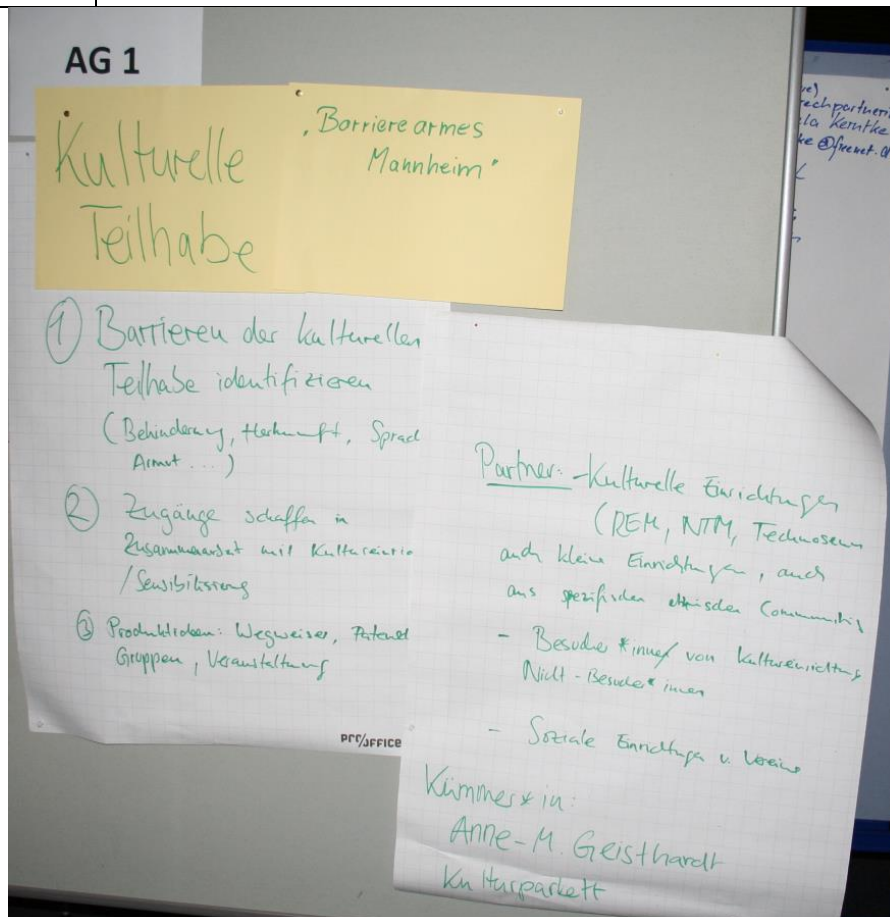 AG 1
Kulturelle
Teilhabe
"Barrierearmes
Mannheim"
① Barrieren der kulturellen
Teilhabe identifizieren
(Behinderung, Herkunft, Sprach
Armut ...)
② Zugänge schaffen in
Zusammenarbeit mit Kultureinric
/Sensibilisierung
③ Produktideen: Wegweiser, Patent
Gruppen, Veranstaltung
PRO/OFFICE
Partner: - Kulturelle Einrichtungen
(REM, NTM, Technoseum
auch kleine Einrichtungen, auch
aus spezifischen ethnischen Communities
- Besucher*innen von Kultureinrichtung
Nicht-Besucher*innen
- Soziale Einrichtungen u. Vereine
Kümmer*in:
Anne-M. Geisthardt
Kulturparkett
echpartneri
la Kerntke
ke@freenet.d